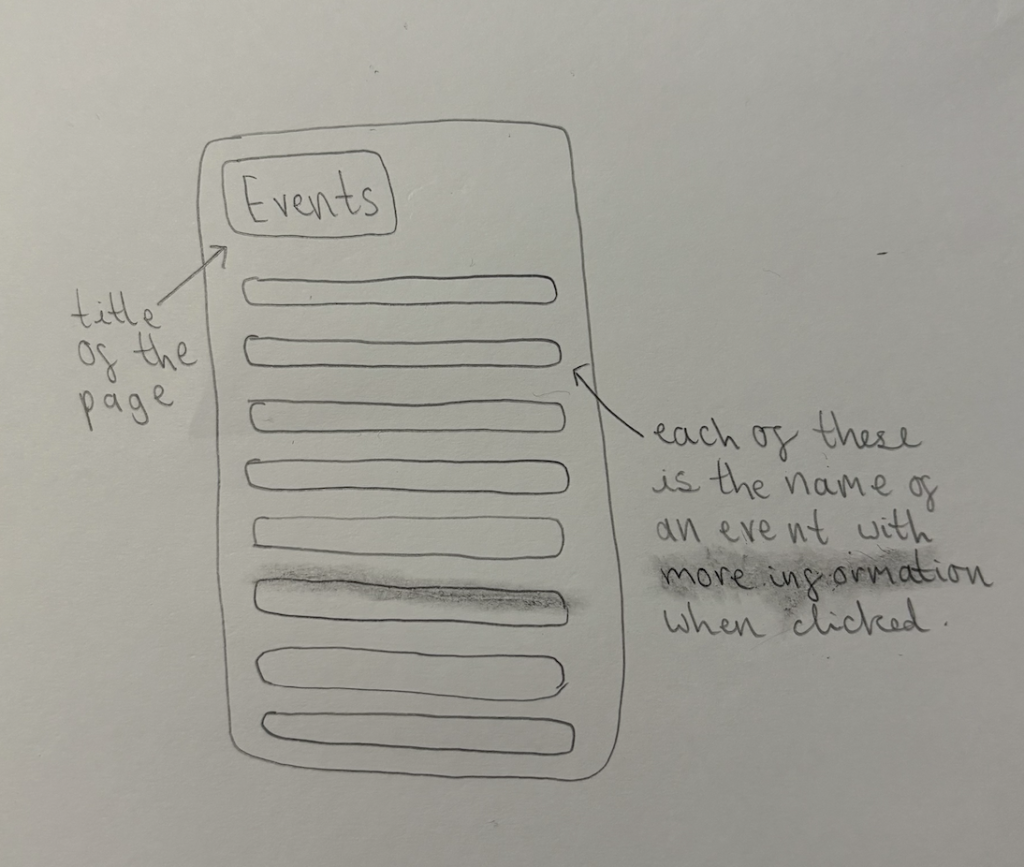 Events
title
of the
page
each of these
is the name of
an event with
more information
when clicked.